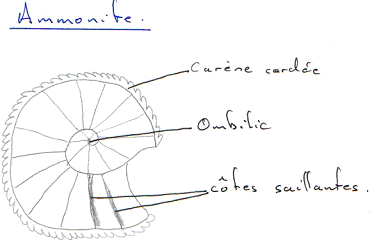 Ammonite.
Carène cordée
Ombilic
côtes saillantes.